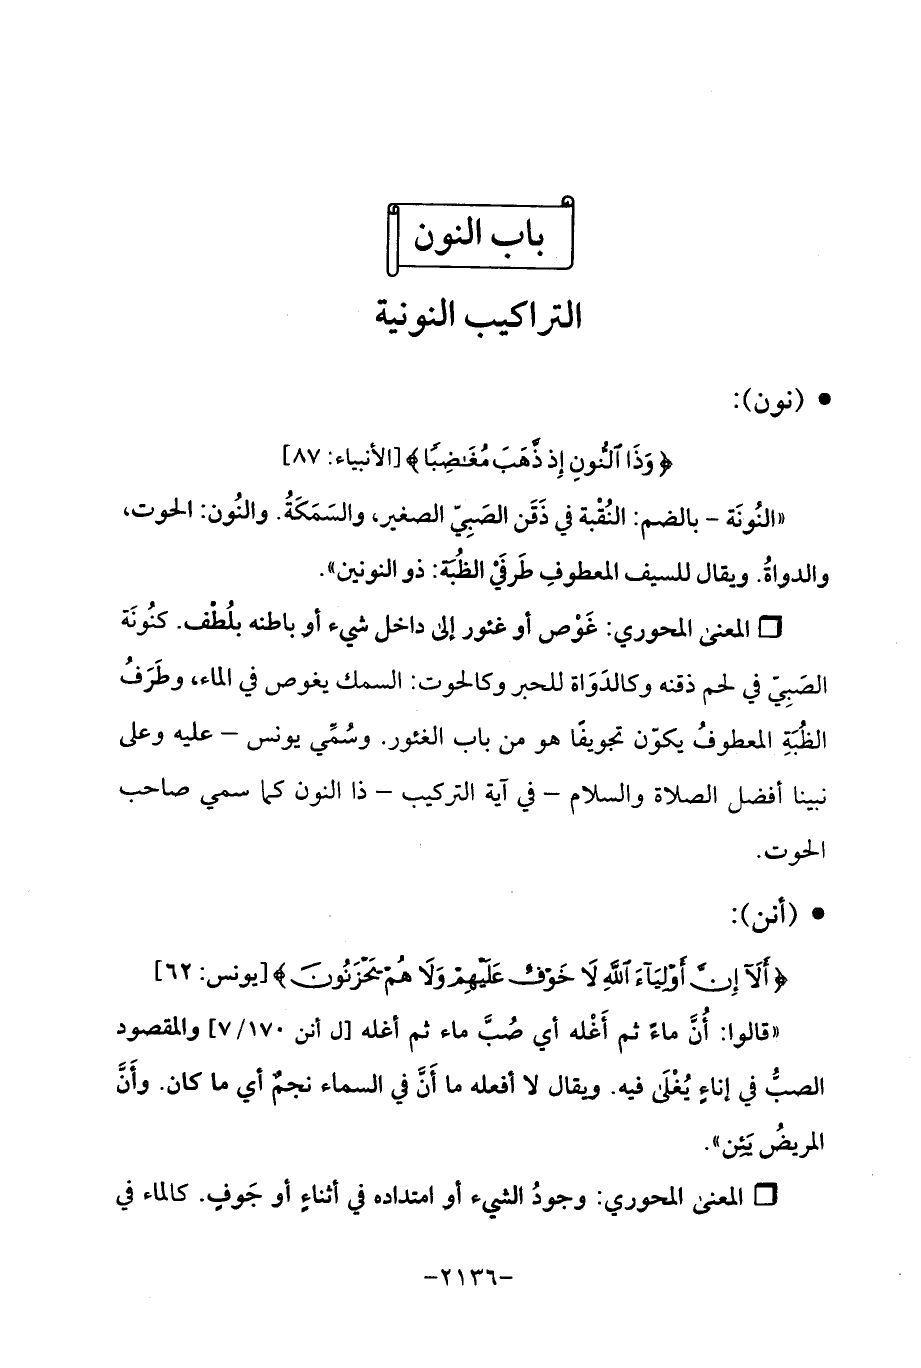 باب النون
التراكيب النونية
• (نون):
﴿وَذَا ٱلنُّونِ إِذ ذَّهَبَ مُغَٰضِبًا﴾ [الأنبياء: ٨٧]
«النُونَة – بالضم: النُقْبة في ذَقَن الصَبِيّ الصغير، والسَمَكَةُ. والنُون: الحوت،
والدواةُ. ويقال للسيف المعطوفِ طَرفَيْ الظُبَة: ذو النونين».
□ المعنى المحوري: غَوْص أو غئور إلى داخل شيء أو باطنه بلُطْف. كنُونَة
الصَبِيّ في لحم ذقنه وكالدَوَاة للحبر وكالحوت: السمك يغوص في الماء، وطَرَفُ
الظُبَةِ المعطوفُ يكوّن تجويفًا هو من باب الغئور. وسُمِّي يونس – عليه وعلى
نبينا أفضل الصلاة والسلام – في آية التركيب – ذا النون كما سمي صاحب
الحوت.
• (أنن):
﴿أَلَآ إِنَّ أَوْلِيَآءَ ٱللَّهِ لَا خَوْفٌ عَلَيْهِمْ وَلَا هُمْ يَحْزَنُونَ﴾ [يونس: ٦٢]
«قالوا: أُنَّ ماءً ثم أَغْله أي صُبَّ ماء ثم أغله [ل أنن ٧/١٧٠] والمقصود
الصبُّ في إناءٍ يُغْلَى فيه. ويقال لا أفعله ما أَنَّ في السماء نجمٌ أي ما كان. وأَنَّ
المريضُ يَئِن».
□ المعنى المحوري: وجودُ الشيء أو امتداده في أثناءٍ أو جَوفٍ. كالماء في
-٢١٣٦-